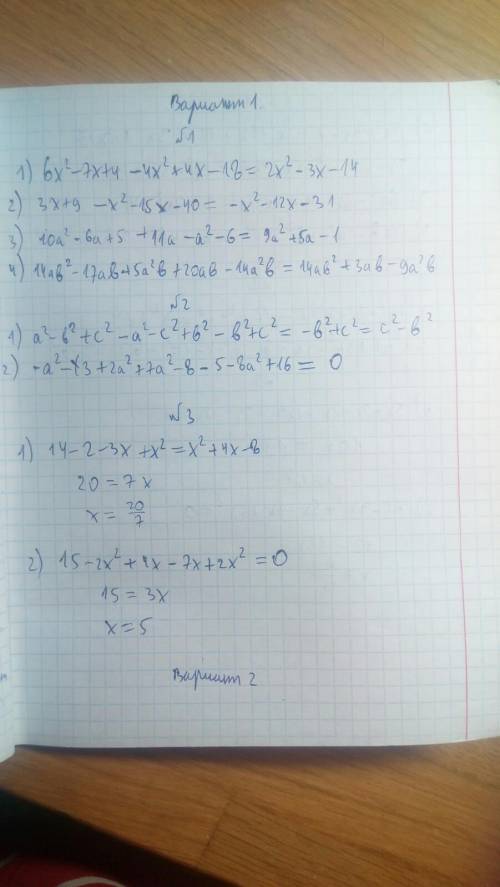 Вариант 1.
№1
1) 6x²-7x+4 -4x²+4x-18= 2x²-3x-14
2) 3x+9 -x²-15x-40= -x²-12x-31
3) 10a²-6a+5 +11a-a²-6= 9a²+5a-1
4) 14ab²-17ab+5a²b+20ab-14a²b=14ab²+3ab-9a²b
№2
1) a²-b²+c²-a²-c²+b²-b²+c²= -b²+c²= c²-b²
2) -a²-3+2a²+7a²-8-5-8a²+16= 0
№3
1) 14-2-3x+x²=x²+4x-8
20=7x
x= 20/7
2) 15-2x²+4x-7x+2x²=0
15=3x
x=5
Вариант 2